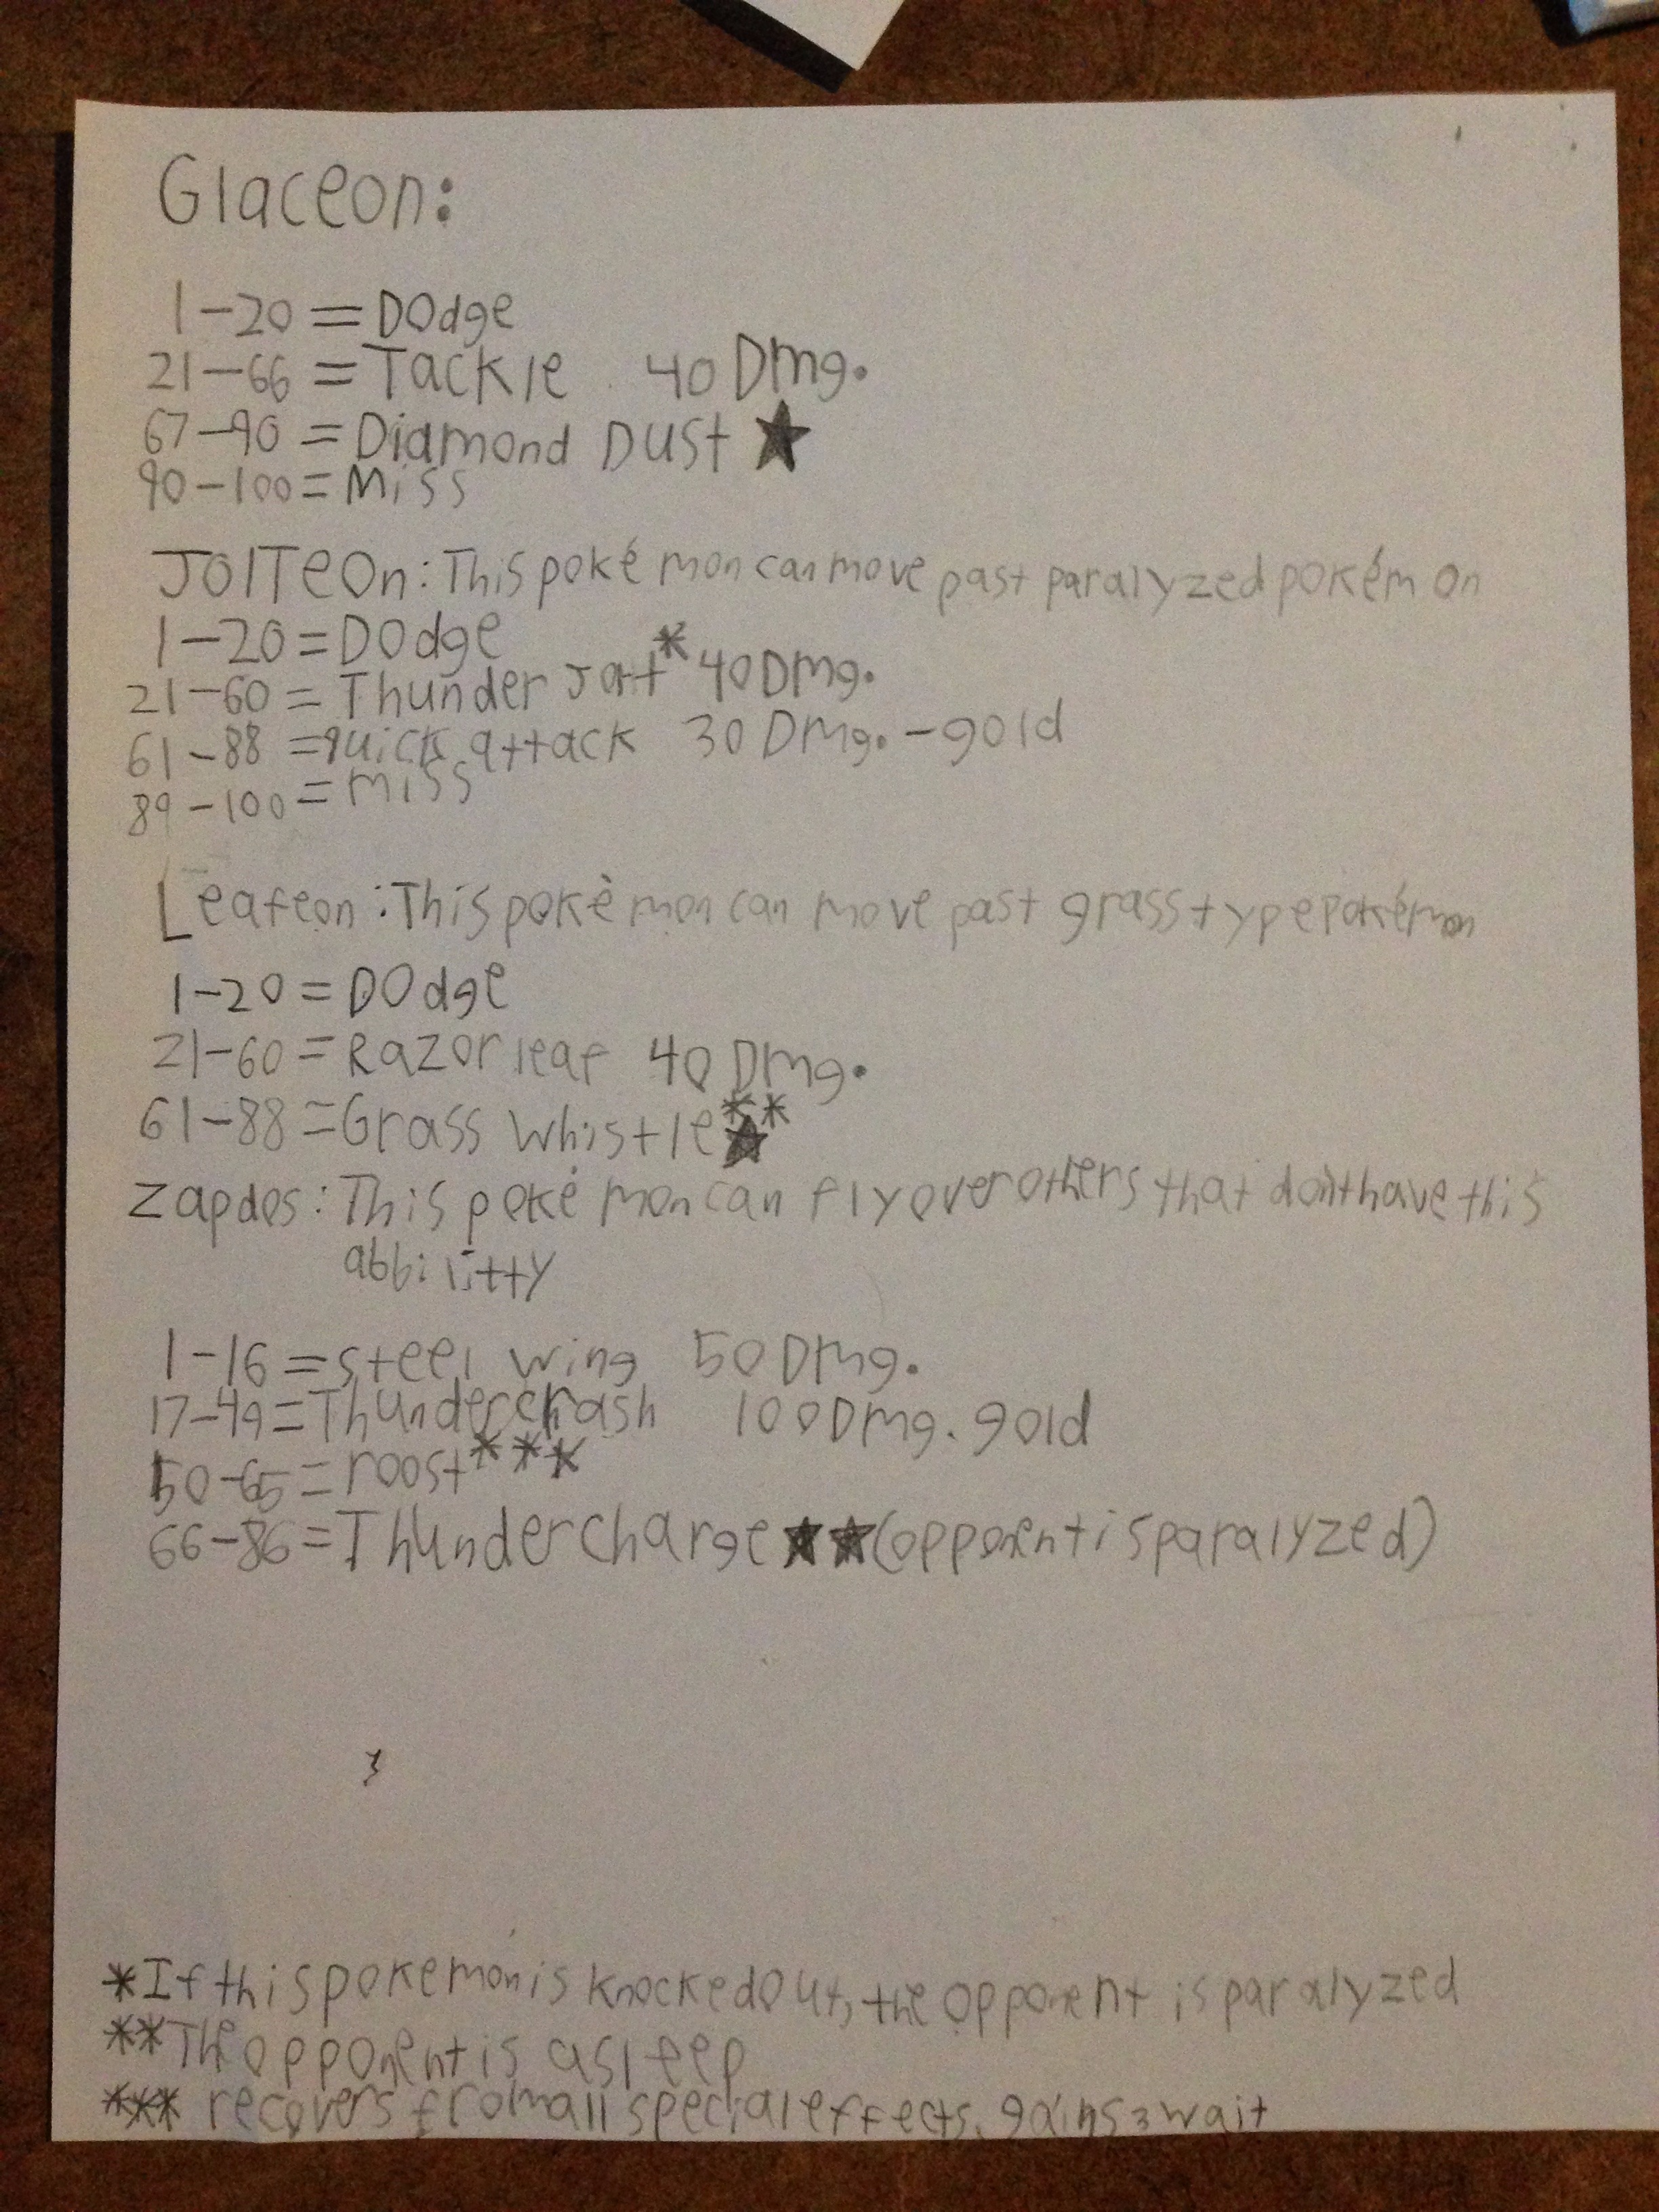 Glaceon:
1-20=Dodge
21-66=Tackle 40 Dmg.
67-90=Diamond Dust ★
90-100=Miss
JolTeon: This pokémon can move past paralyzed pokémon
1-20=Dodge
21-60=Thunder Jolt* 40 Dmg.
61-88=quick attack 30 Dmg.-gold
89-100=miss
Leafeon: This pokémon can move past grass type pokémon
1-20=Dodge
21-60=Razor leaf 40 Dmg.
61-88=Grass whistle★**
Zapdos: This pokémon can fly over others that don't have this
abbilitty
1-16=Steel wing 50 Dmg.
17-49=Thundercrash 100 Dmg. gold
50-65=roost***
66-86=Thundercharge★★(opponent is paralyzed)
*If this pokemon is knocked out, the opponent is paralyzed
**The opponent is asleep
*** recovers from all special effects, gains 3 wait